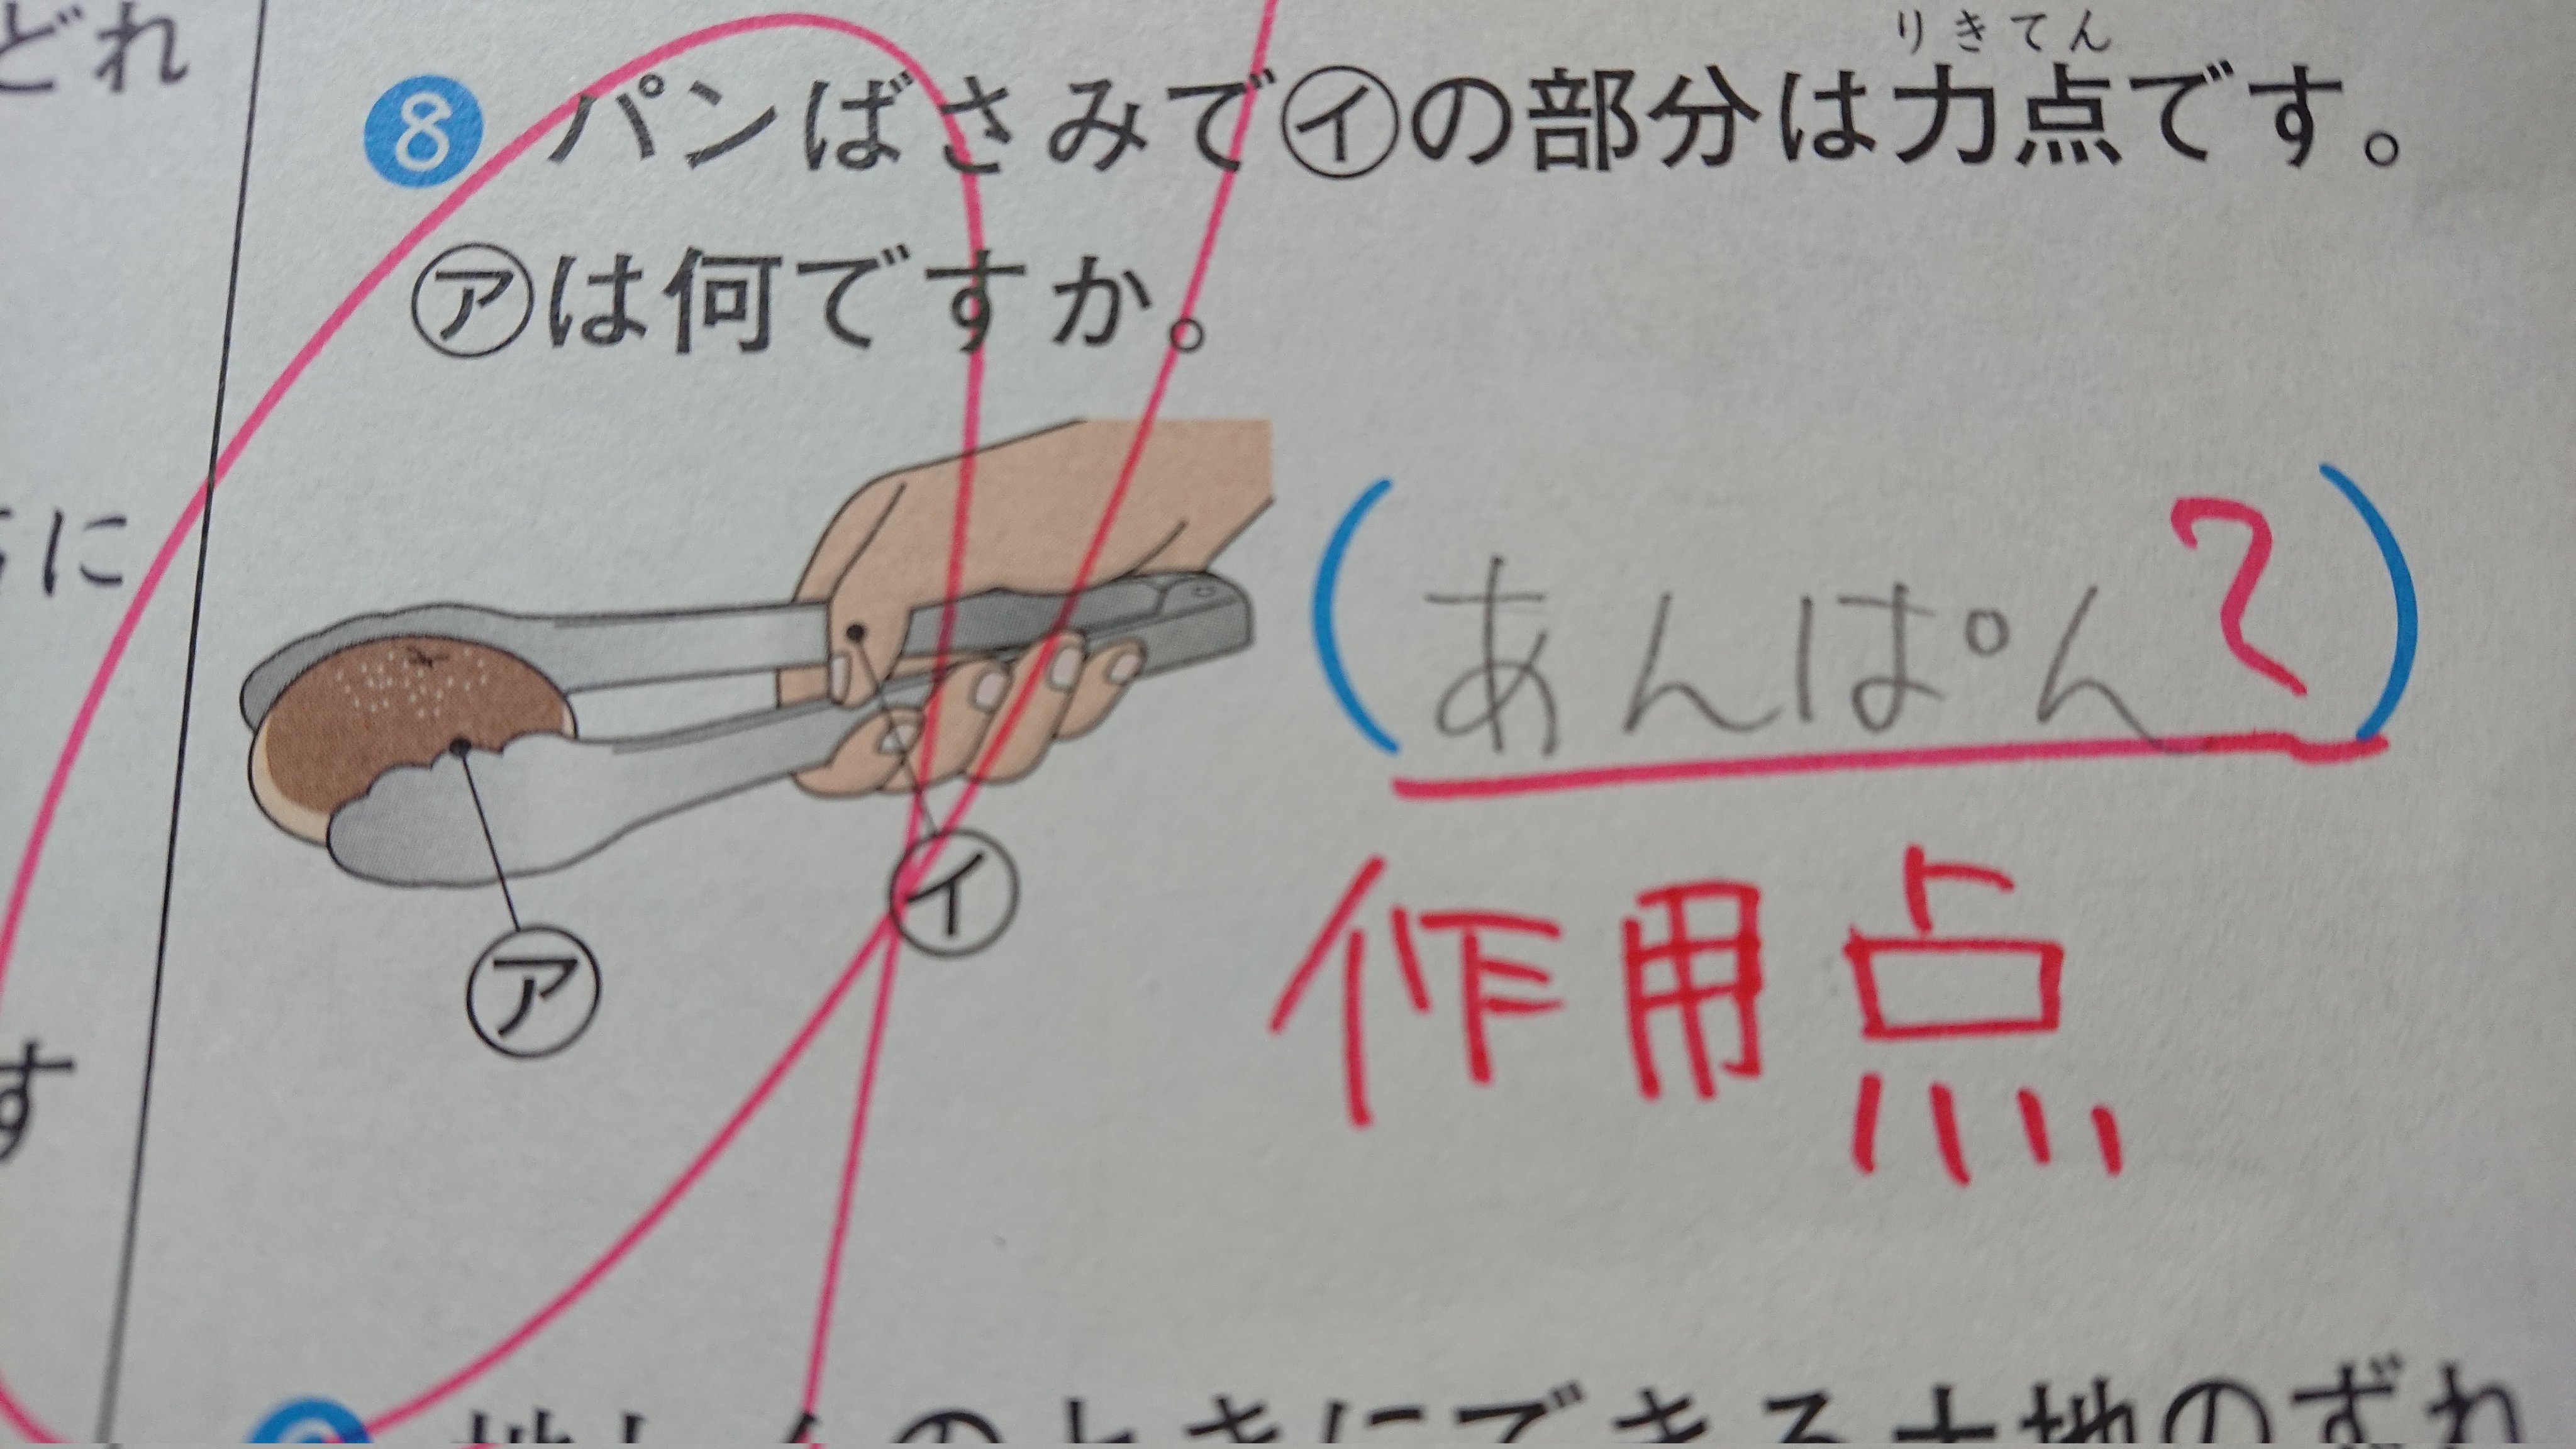 どれ
りきてん
8 パンばさみで㋑の部分は力点です。
㋐は何ですか。
に
(あんぱん)
㋑
作用点
㋐
す
のときにできる土地のずれ